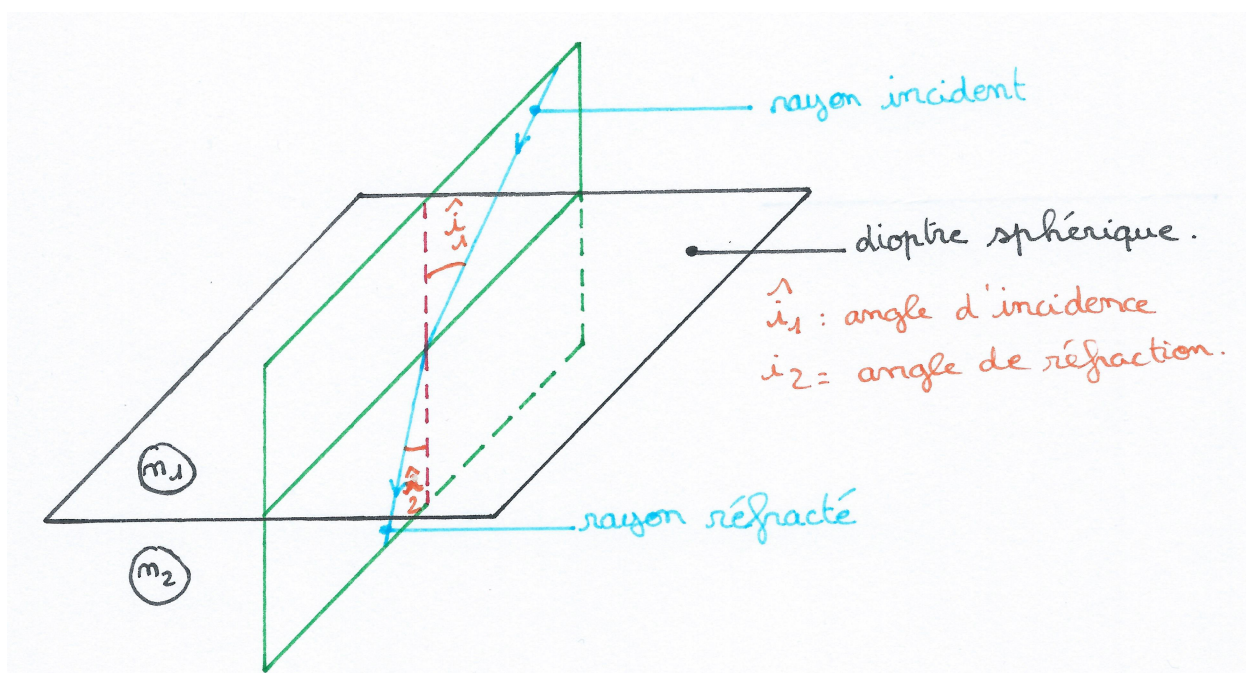 rayon incident
î₁
dioptre sphérique.
î₁ : angle d'incidence
i₂ = angle de réfraction.
n₁
î₂
rayon réfracté
n₂